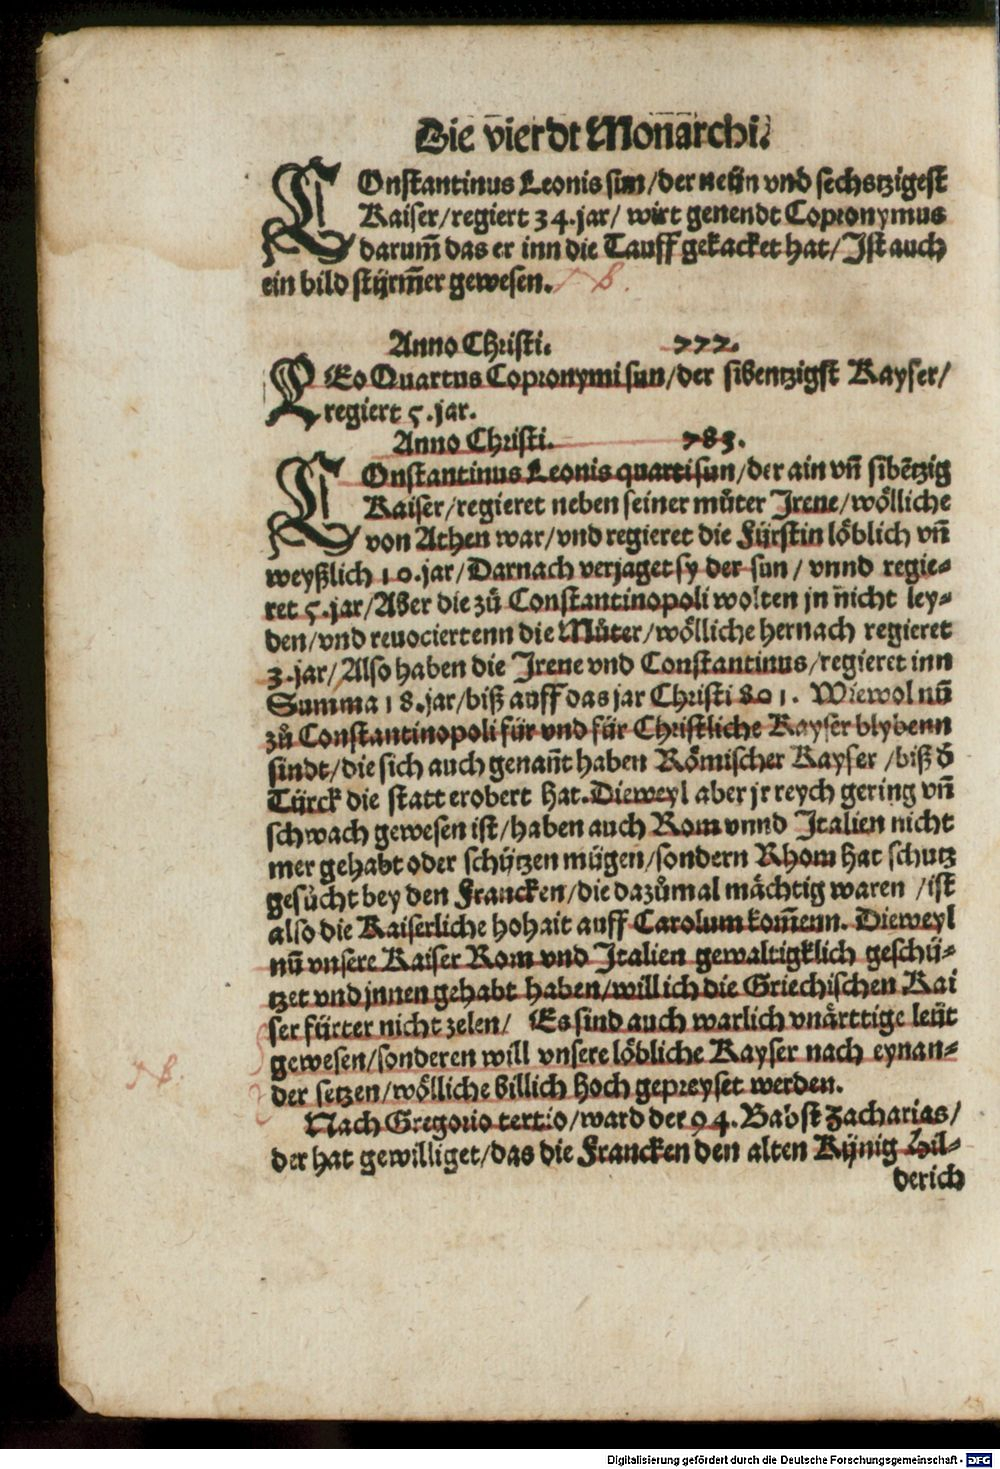 Die vierdt Monarchi.
COnstantinus Leonis sun/der neün vnd sechstzigest
Kaiser/regiert 34.jar/ wirt genendt Copronymus
darum̄ das er inn die Tauff gekacket hat/Jst auch
ein bild stürm̄er gewesen.
Anno Christi. 772.
LEo Quartus Copronymi sun/der sibentzigst Kayser/
regiert 5.jar.
Anno Christi. 783.
COnstantinus Leonis quarti sun/der ain vn̄ sibētzig
Kaiser/regieret neben seiner můter Jrene/wölliche
von Athen war/vnd regieret die Fürstin löblich vn̄
weyßlich 10.jar/Darnach verjaget sy der sun/ vnnd regie-
ret 5.jar/Aber die zů Constantinopoli wolten jn nicht ley-
den/vnd reuociertenn die Můter/wölliche hernach regieret
3.jar/Also haben die Jrene vnd Constantinus/regieret inn
Summa 18.jar/biß auff das jar Christi 801. Wiewol nū
zů Constantinopoli für vnd für Christliche Kayser blybenn
sindt/die sich auch genan̄t haben Römischer Kayser /biß d̄
Türck die statt erobert hat.Dieweyl aber jr reych gering vn̄
schwach gewesen ist/haben auch Rom vnnd Jtalien nicht
mer gehabt oder schützen mügen/sondern Rhom hat schutz
gesůcht bey den Francken/die dazůmal mächtig waren /ist
also die Kaiserliche hohait auff Carolum kom̄enn. Dieweyl
nū vnsere Kaiser Rom vnd Jtalien gewaltigklich geschü-
tzet vnd jnnen gehabt haben/will ich die Griechischen Kai
ser fürter nicht zelen/ Es sind auch warlich vnärttige leüt
gewesen/sonderen will vnsere löbliche Kayser nach eynan-
der setzen/wölliche billich hoch gepreyset werden.
Nach Gregorio tertio/ward der 94.Babst Zacharias/
der hat gewilliget/das die Francken den alten Künig Hil-
derich
Digitalisierung gefördert durch die Deutsche Forschungsgemeinschaft - DFG